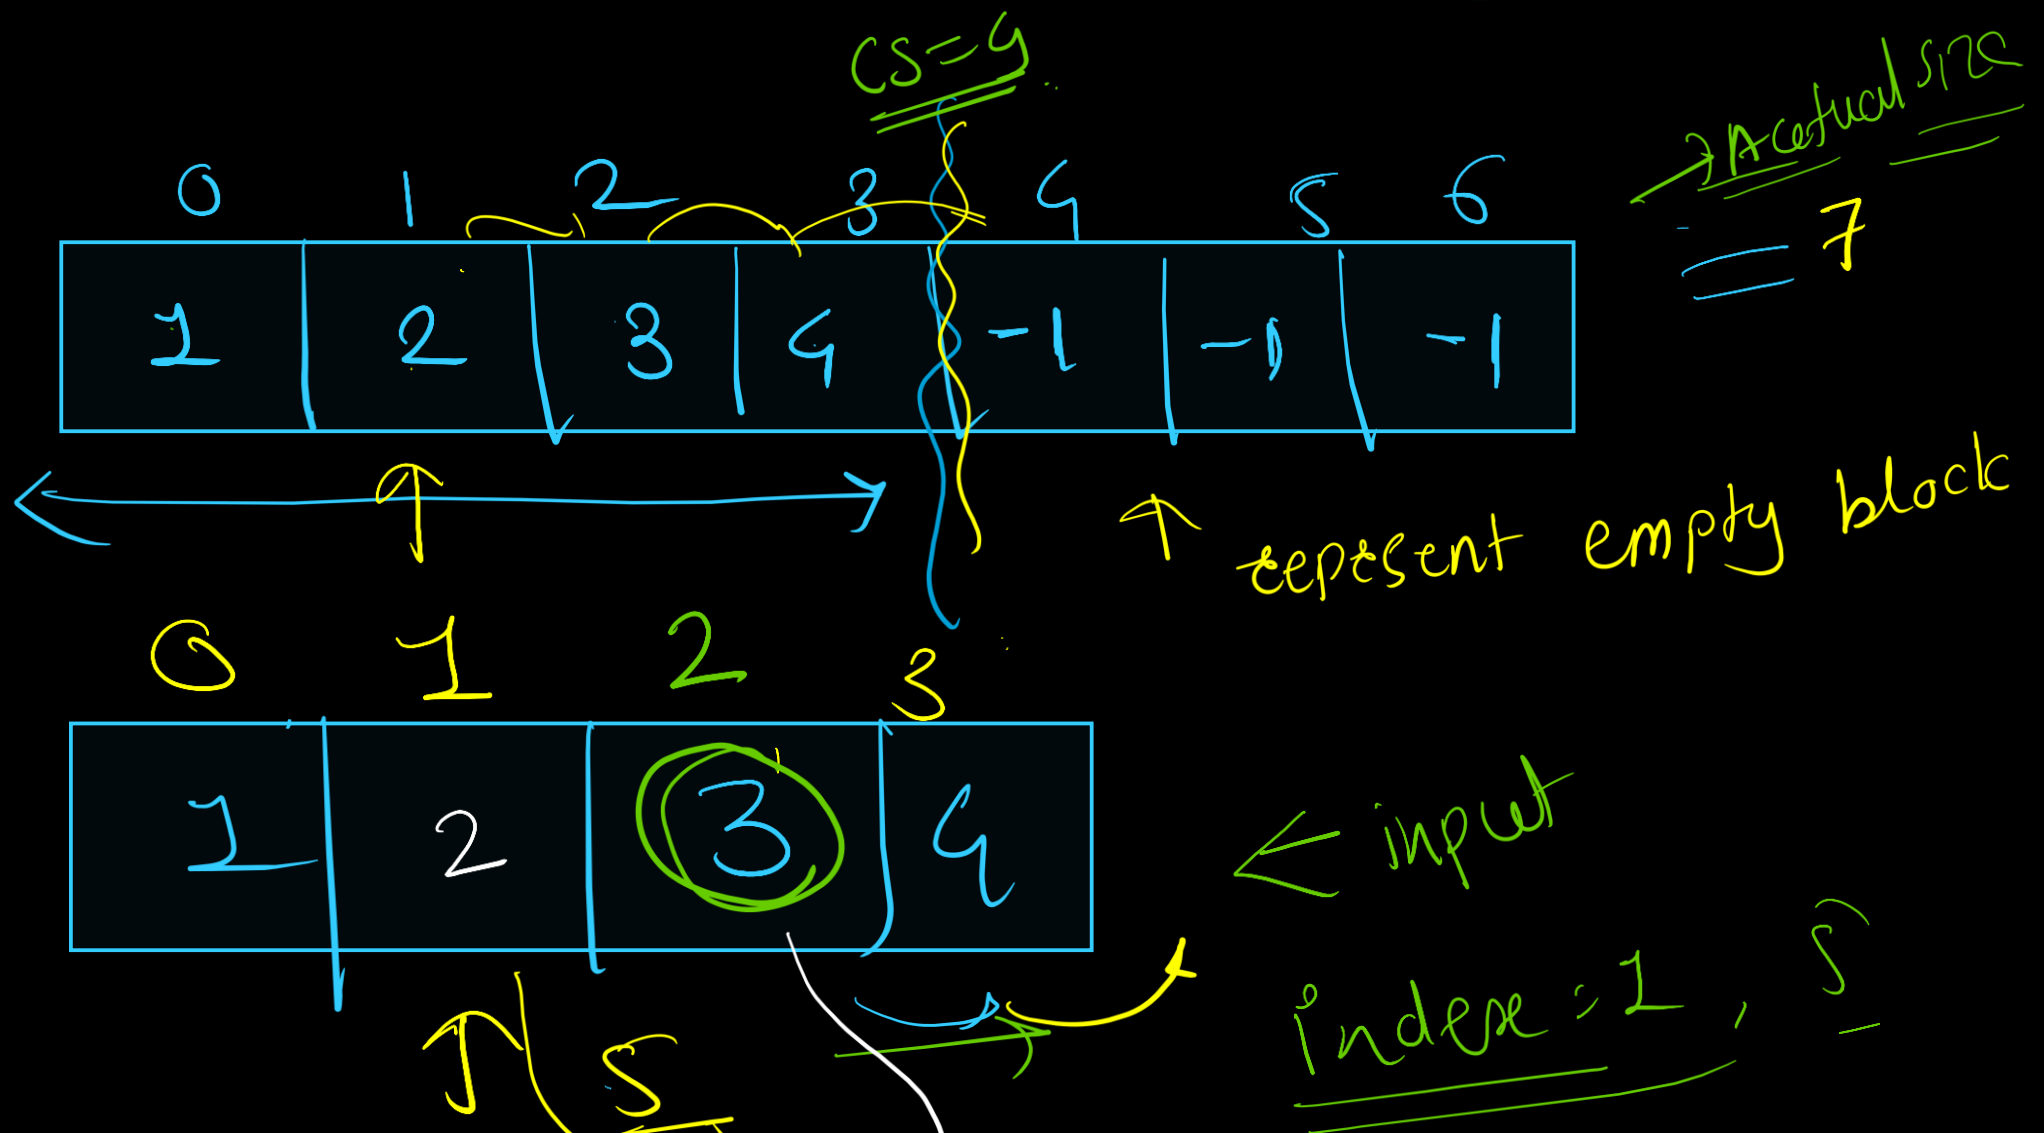 CS = 4
Acatual size
0 1 2 3 4 5 6
7
1 2 3 4 -1 -1 -1
represent empty block
0 1 2 3
1 2 3 4
input
index = 1, 5
5